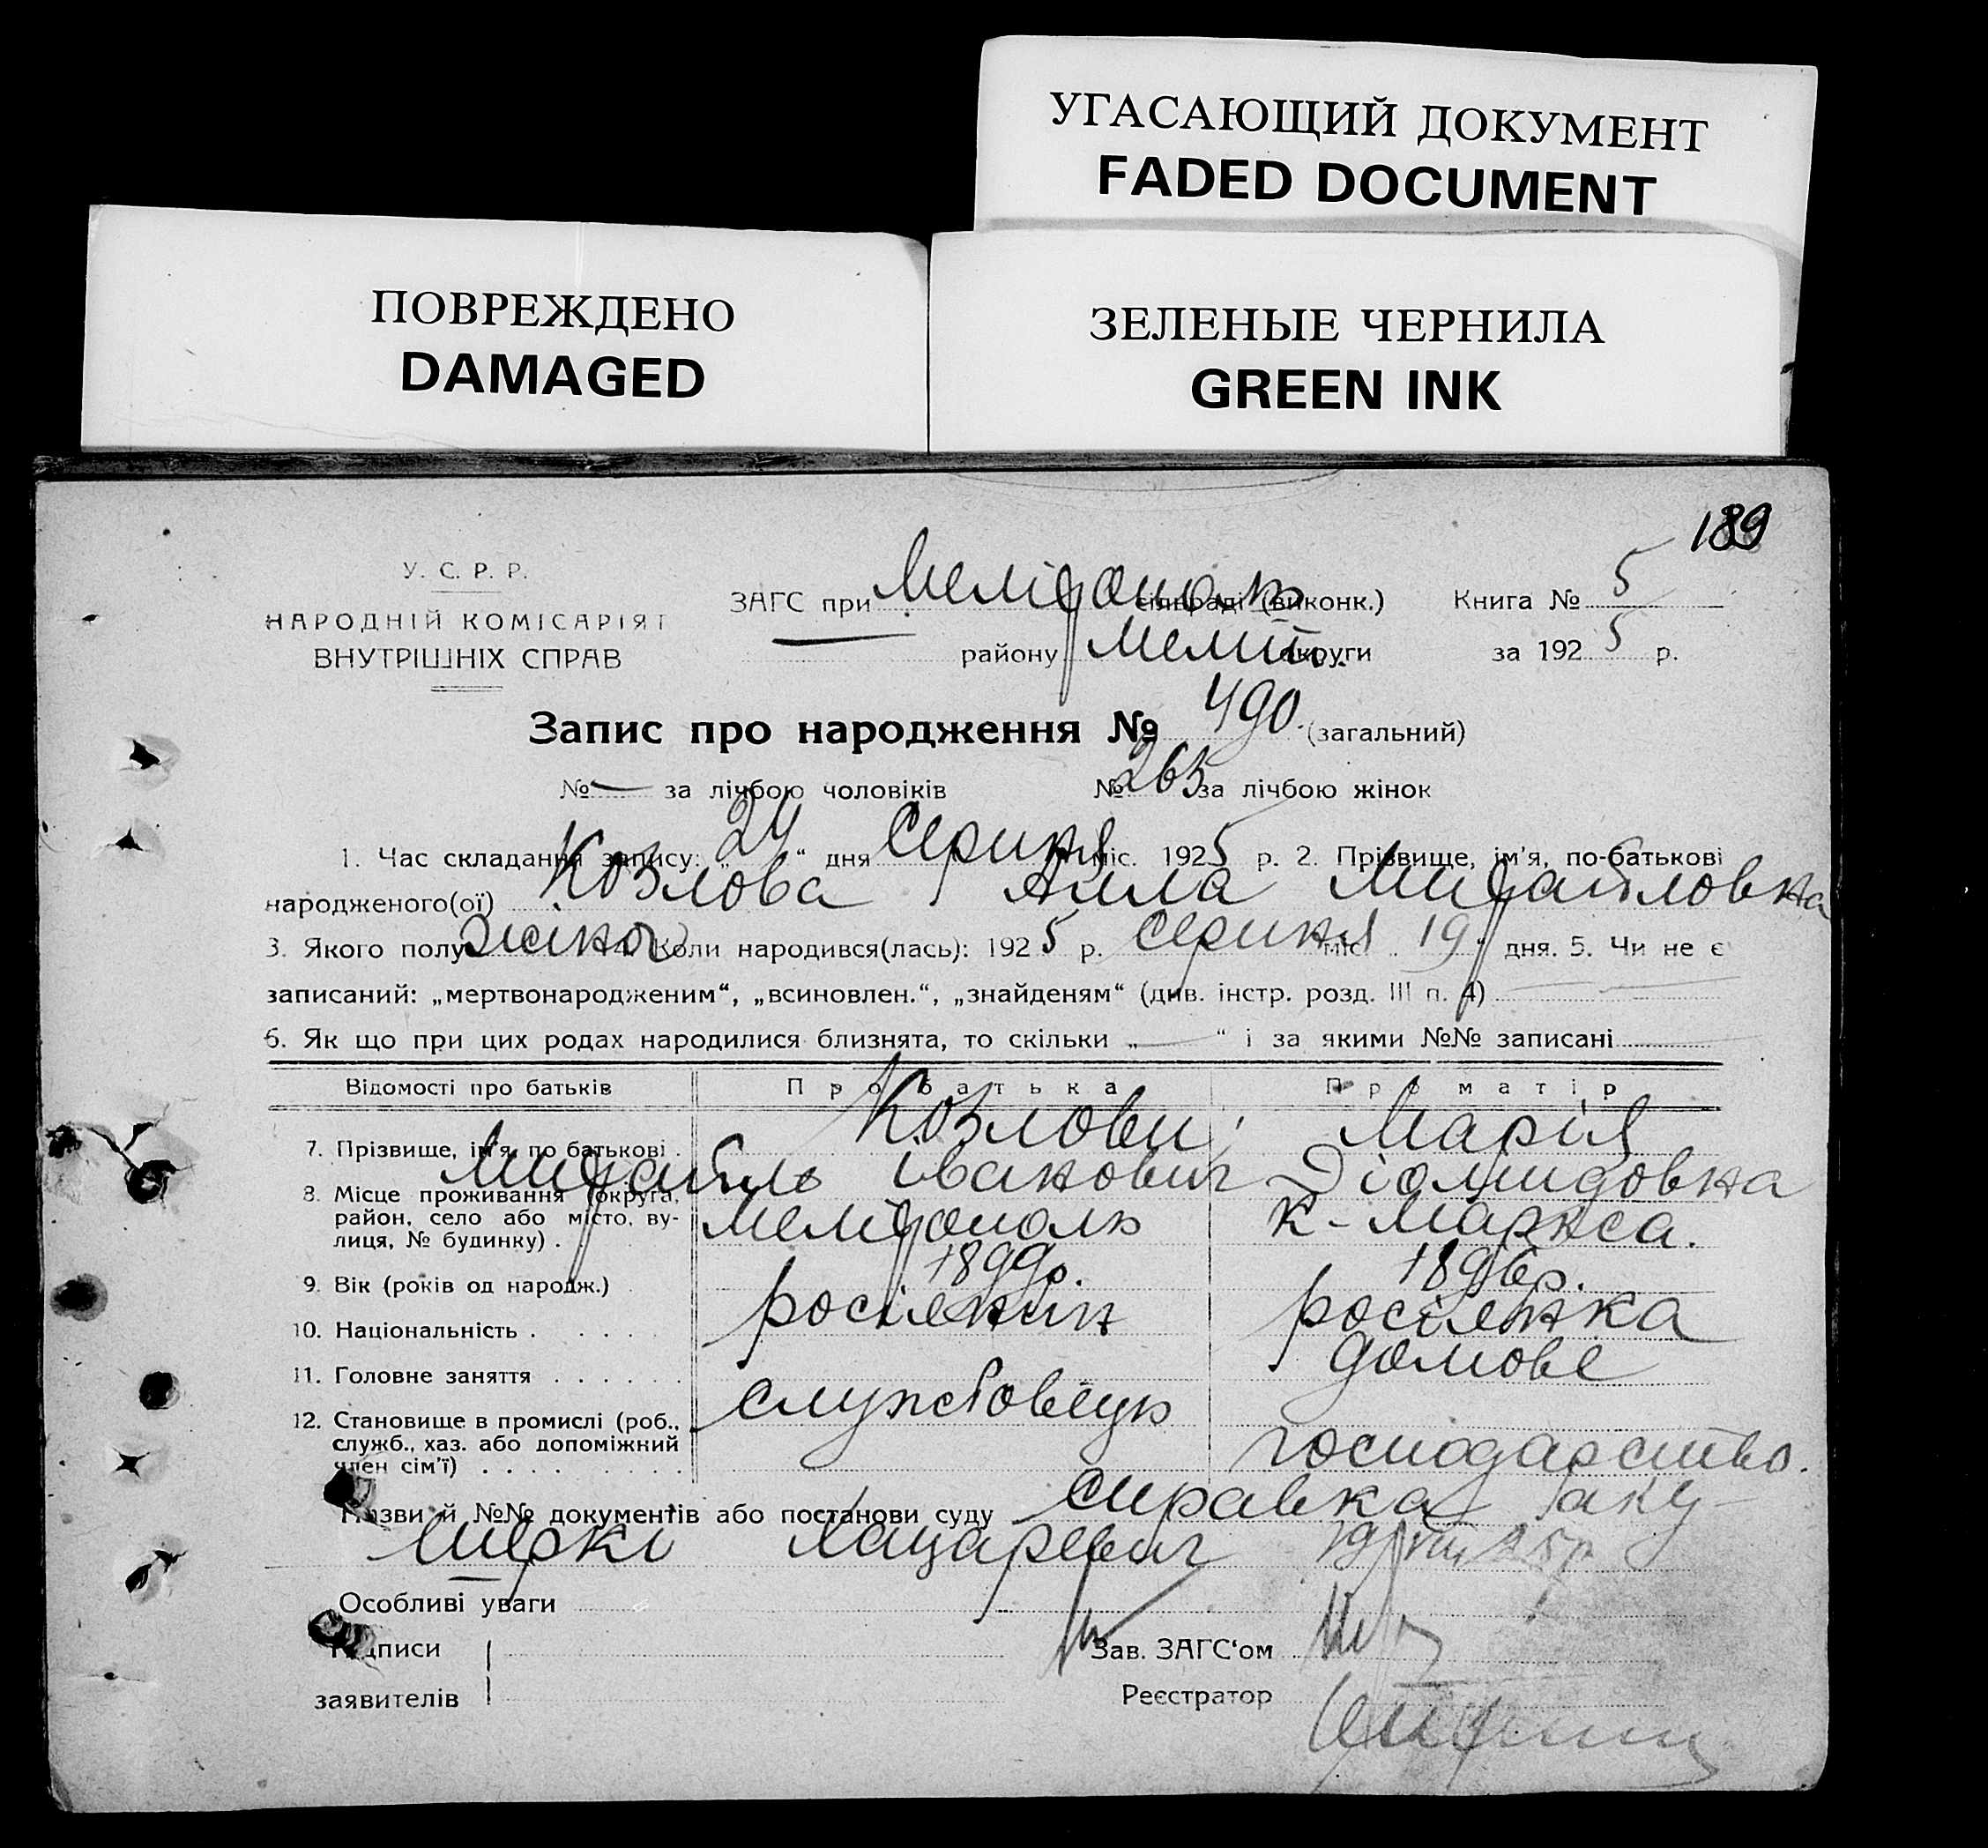 УГАСАЮЩИЙ ДОКУМЕНТ
FADED DOCUMENT
ПОВРЕЖДЕНО
DAMAGED
ЗЕЛЕНЫЕ ЧЕРНИЛА
GREEN INK
189
У. С. Р. Р.
НАРОДНІЙ КОМІСАРІЯТ
ВНУТРІШНІХ СПРАВ
ЗАГС при Мелітополь сільраді (виконк.) Книга № 5
району Меліт. округи за 1925 р.
Запис про народження № 490 (загальний)
№ — за лічбою чоловіків № 265 за лічбою жінок
1. Час складання запису: „24“ дня Серпня міс. 1925 р. 2. Прізвище, ім'я, по-батькові
народженого(ої) Козлова Михайловна
3. Якого полу жіноч 4. Коли народився(лась): 1925 р. серпня міс. „19“ дня. 5. Чи не є
записаний: „мертвонародженим“, „всиновлен.“, „знайденям“ (див. інстр. розд. III п. 4) —
6. Як що при цих родах народилися близнята, то скільки „—“ і за якими №№ записані
Відомості про батьків Про батька Про матір
7. Прізвище, ім'я, по батькові . Козлови Марія
Михайль Іванович Діомидовна
8. Місце проживання (округа, район, село або місто, ву-
лиця, № будинку) . Мелітополь К-Маркса.
9. Вік (років од народж.) 1899р. 1896р.
10. Національність . . . . . росіянин росіянка
11. Головне заняття . . . . . . службовець домове
12. Становище в промислі (роб.,
служб., хаз. або допоміжний
член сім'ї) . . . . . . . . . господарство.
Назви й №№ документів або постанови суду справка аку-
шерки Лацаревич 19/VIII 25р.
Особливі уваги
Підписи
заявителів
Зав. ЗАГС'ом
Реєстратор